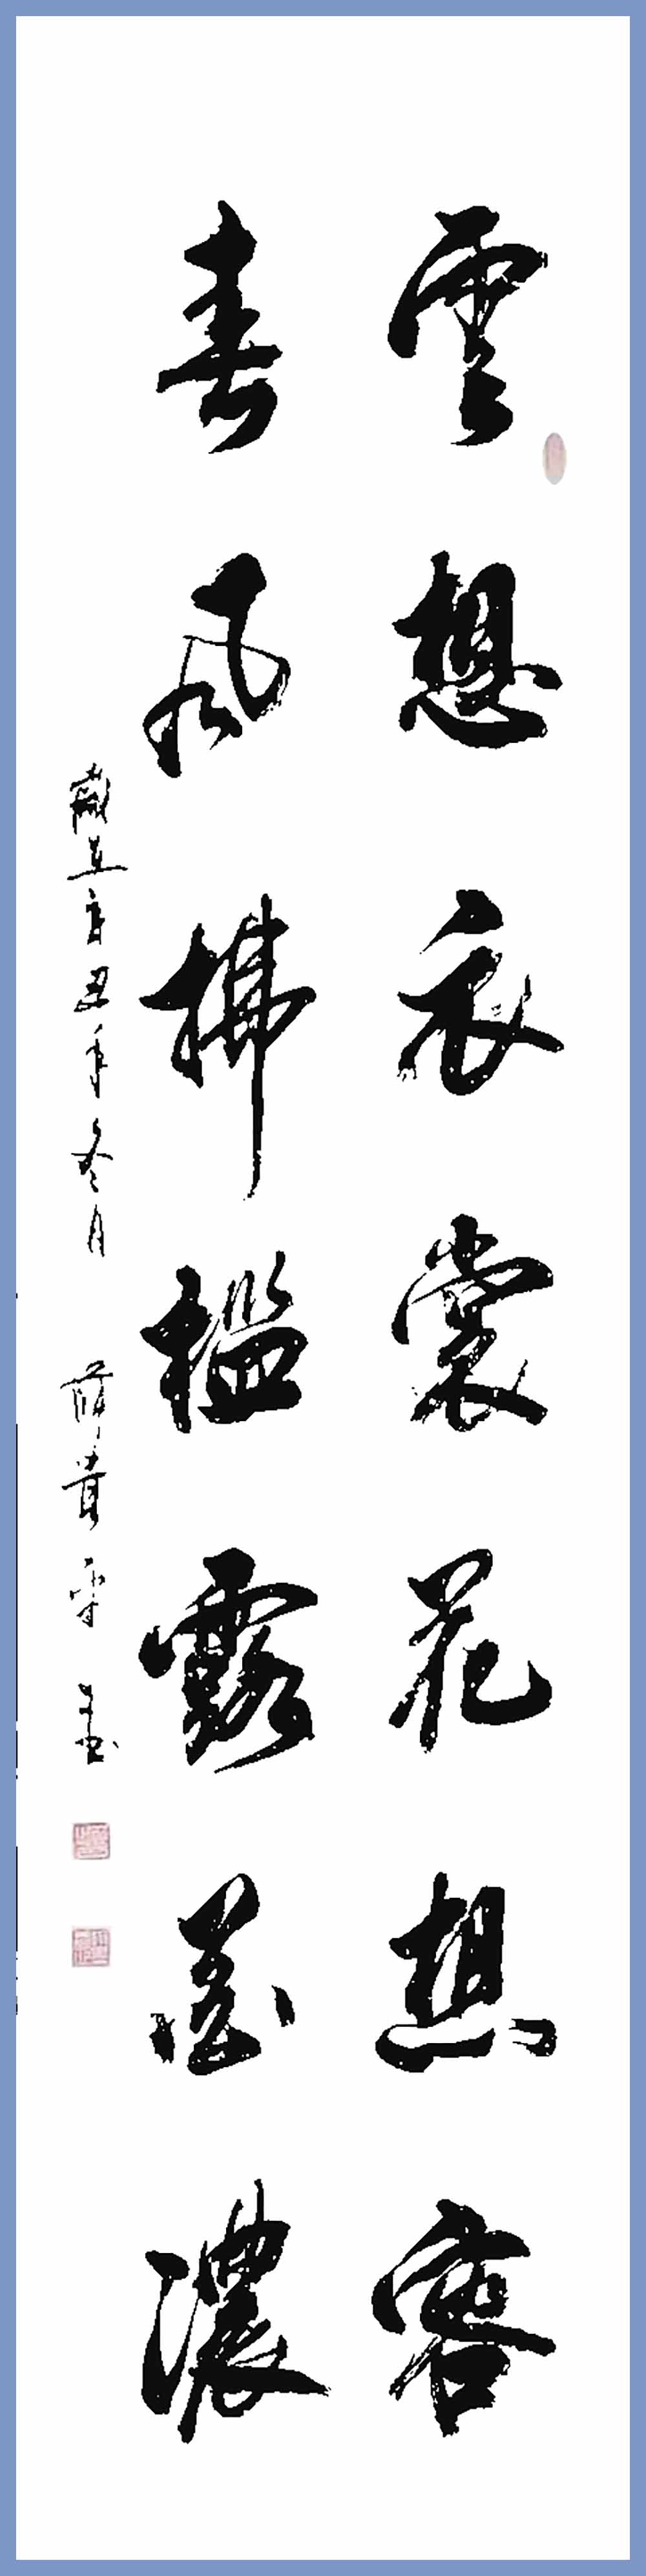 雲想衣裳花想容
春風拂檻露華濃
歲在辛丑年冬月 薛貴平書